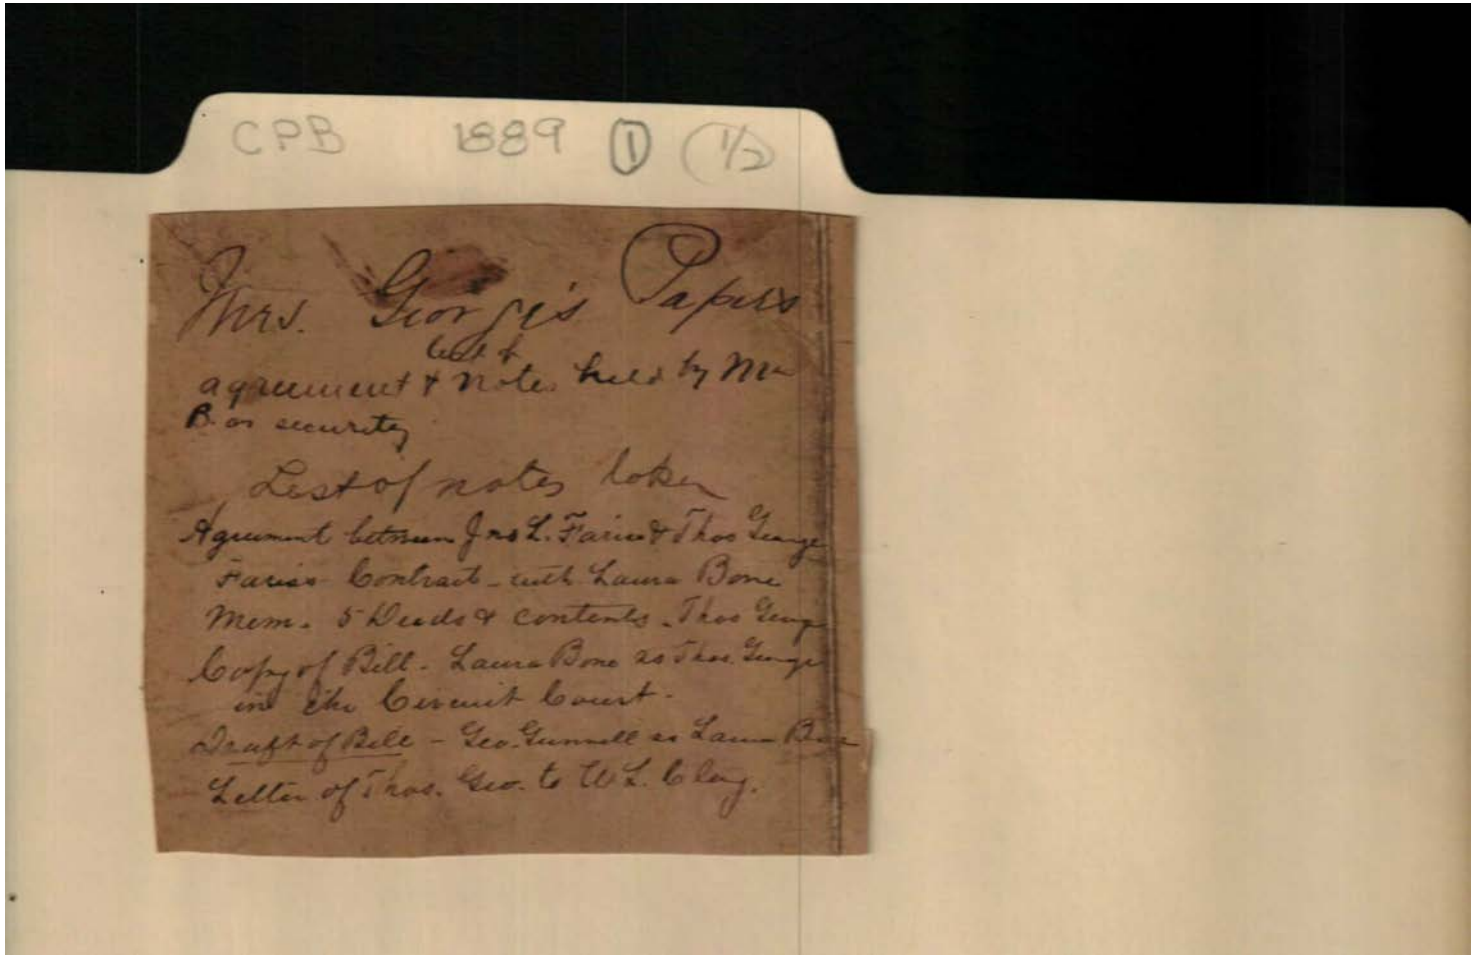 CPB 1889 1 (1/2)
Mrs. George's Papers
List of
agreement & notes held by Mr
B. as security
List of notes token
Agreement between Jno L. Fariss & Thos George
Fariss Contract - with Laura Bone
Mem. 5 Deeds & contents. Thos George
Copy of Bill - Laura Bone vs Thos. George
in the Circuit Court.
Draft of Bill - Geo. Gunnell vs Laura Bone
Letter of Thos. Geo. to W L. Clay.